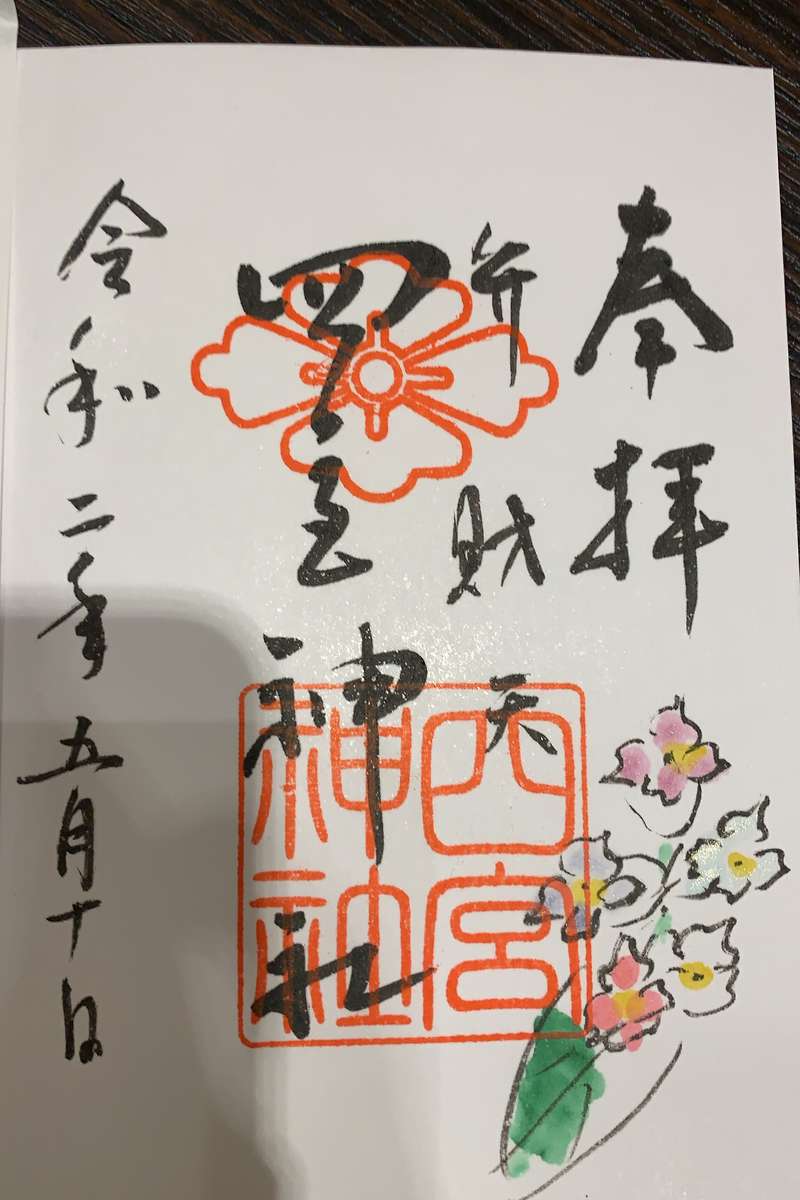 奉拝
弁財天
四宮神社
四宮神社
令和二年五月十日